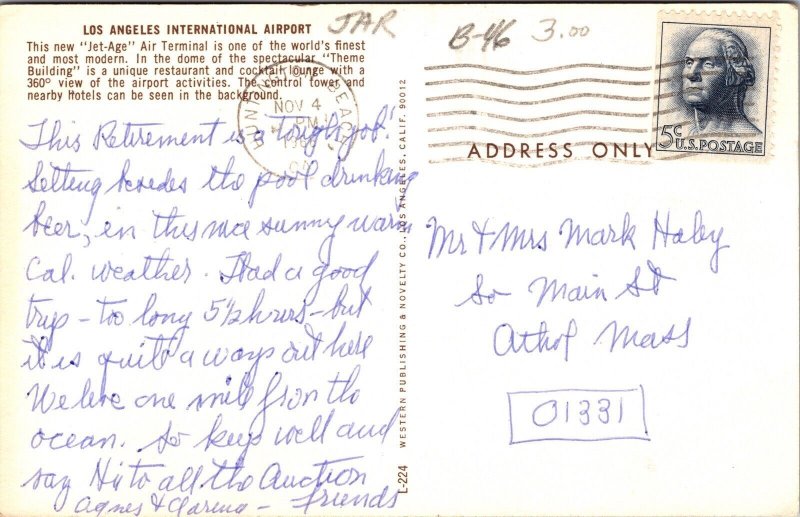 LOS ANGELES INTERNATIONAL AIRPORT
This new "Jet-Age" Air Terminal is one of the world's finest
and most modern. In the dome of the spectacular "Theme
Building" is a unique restaurant and cocktail lounge with a
360° view of the airport activities. The control tower and
nearby Hotels can be seen in the background.
JAR
B-46 3.00
NOV 4
PM
5c U.S. POSTAGE
ADDRESS ONLY
This Retirement is a tough job!
Setting besides the pool drinking
beer, in this nice sunny warm
Cal. weather. Had a good
trip - to long 5 1/2 hours - but
it is quite a ways out here
We live one mile from the
ocean. So keep well and
say Hi to all the Auction
friends
Agnes &
WESTERN PUBLISHING & NOVELTY CO., LOS ANGELES, CALIF. 90012
L-224
Mr & Mrs Mark Haley
So Main St
Athol Mass
01331